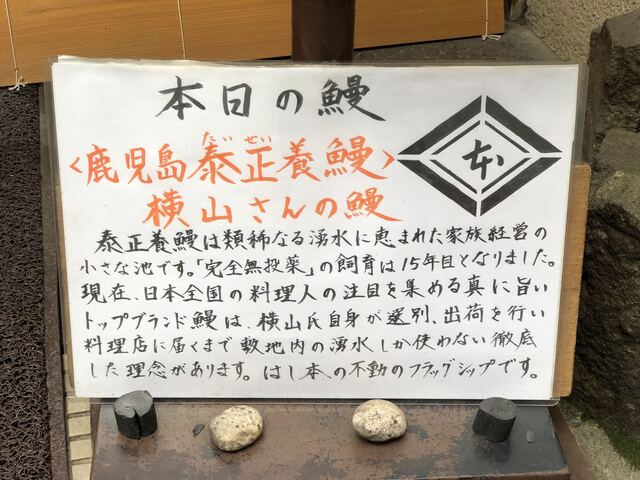 本日の鰻
<鹿児島泰正養鰻>
たいせい
横山さんの鰻
本
泰正養鰻は類稀なる湧水に恵まれた家族経営の
小さな池です。「完全無投薬」の飼育は15年目となりました。
現在、日本全国の料理人の注目を集める真に旨い
トップブランド鰻は、横山氏自身が選別、出荷を行い
料理店に届くまで敷地内の湧水しか使わない徹底
した理念があります。はし本の不動のフラッグシップです。